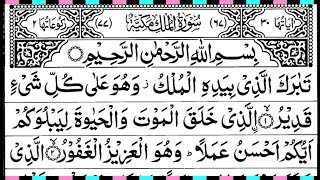 اٰیَاتُهَا ٣٠ (٦٧) سُوْرَةُ الْمُلْكِ مَكِّيَّةٌ (٧٧) رُكُوْعَاتُهَا ٢
بِسْمِ اللّٰهِ الرَّحْمٰنِ الرَّحِيْمِ
تَبٰرَكَ الَّذِيْ بِيَدِهِ الْمُلْكُ ز وَهُوَ عَلٰى كُلِّ شَيْءٍ
قَدِيْرُۨ ۝١ الَّذِيْ خَلَقَ الْمَوْتَ وَالْحَيٰوةَ لِيَبْلُوَكُمْ
اَيُّكُمْ اَحْسَنُ عَمَلًا ؕ وَهُوَ الْعَزِيْزُ الْغَفُوْرُ ۝٢ الَّذِيْ